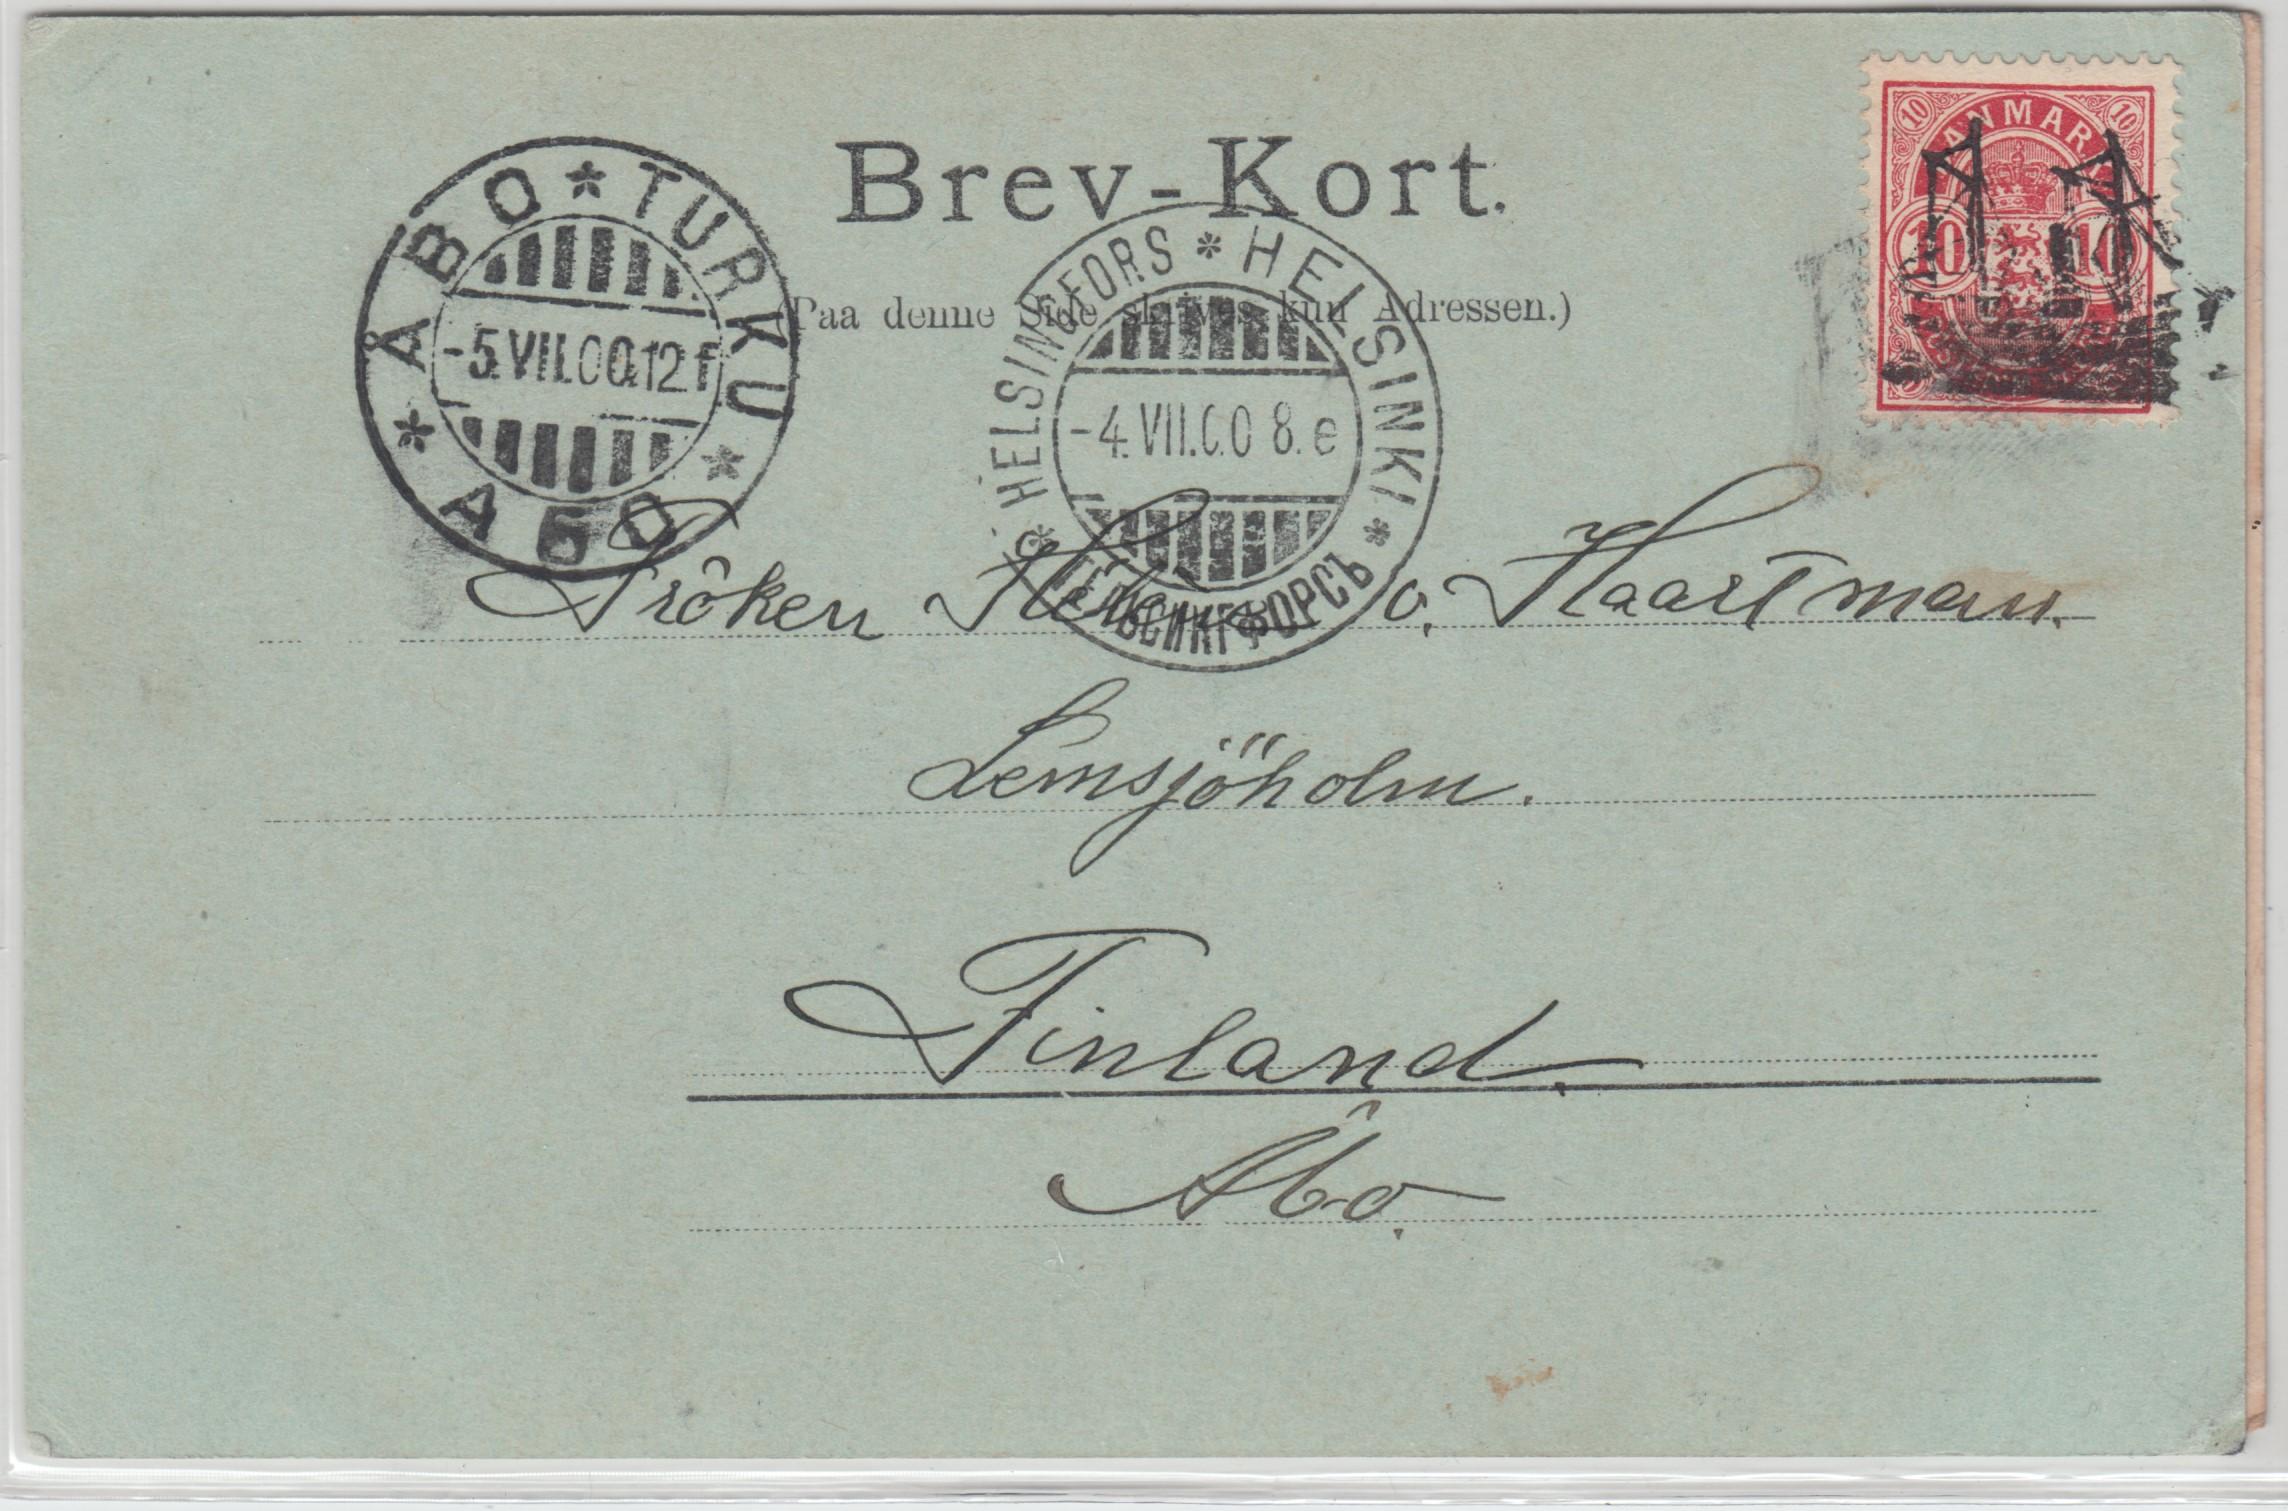 Brev-Kort.
(Paa denne Side skrives kun Adressen.)
DANMARK
10 10
10 10
ÅBO * TURKU * АБО *
-5.VII.00.12 f
HELSINGFORS * HELSINKI * ГЕЛЬСИНГФОРСЪ *
-4.VII.00 8.e
Fröken v. Haartman.
Lemsjöholm.
Finland.
Åbo.